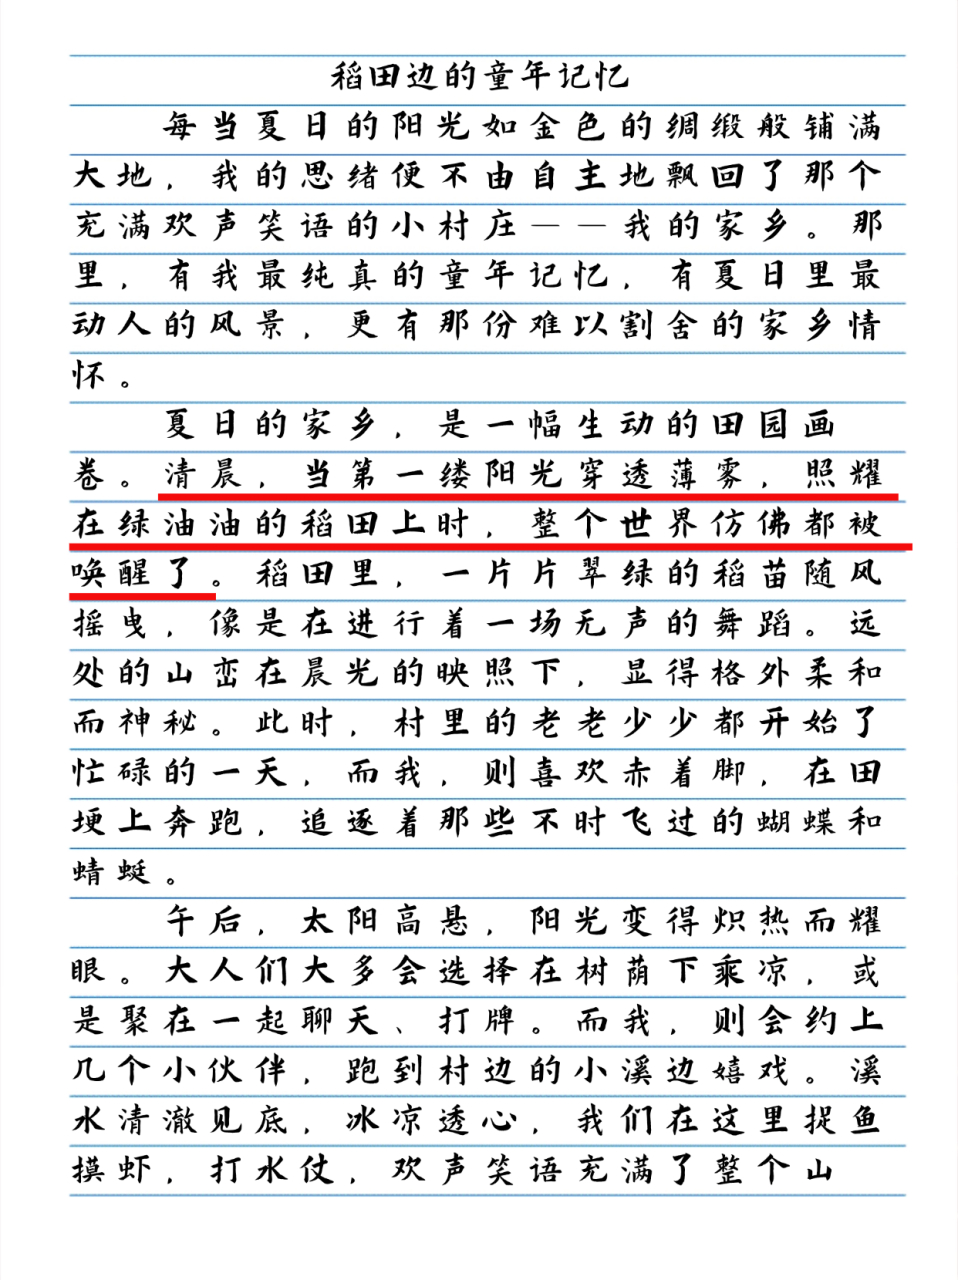 稻田边的童年记忆
每当夏日的阳光如金色的绸缎般铺满
大地，我的思绪便不由自主地飘回了那个
充满欢声笑语的小村庄——我的家乡。那
里，有我最纯真的童年记忆，有夏日里最
动人的风景，更有那份难以割舍的家乡情
怀。
夏日的家乡，是一幅生动的田园画
卷。清晨，当第一缕阳光穿透薄雾，照耀
在绿油油的稻田上时，整个世界仿佛都被
唤醒了。稻田里，一片片翠绿的稻苗随风
摇曳，像是在进行着一场无声的舞蹈。远
处的山峦在晨光的映照下，显得格外柔和
而神秘。此时，村里的老老少少都开始了
忙碌的一天，而我，则喜欢赤着脚，在田
埂上奔跑，追逐着那些不时飞过的蝴蝶和
蜻蜓。
午后，太阳高悬，阳光变得炽热而耀
眼。大人们大多会选择在树荫下乘凉，或
是聚在一起聊天、打牌。而我，则会约上
几个小伙伴，跑到村边的小溪边嬉戏。溪
水清澈见底，冰凉透心，我们在这里捉鱼
摸虾，打水仗，欢声笑语充满了整个山